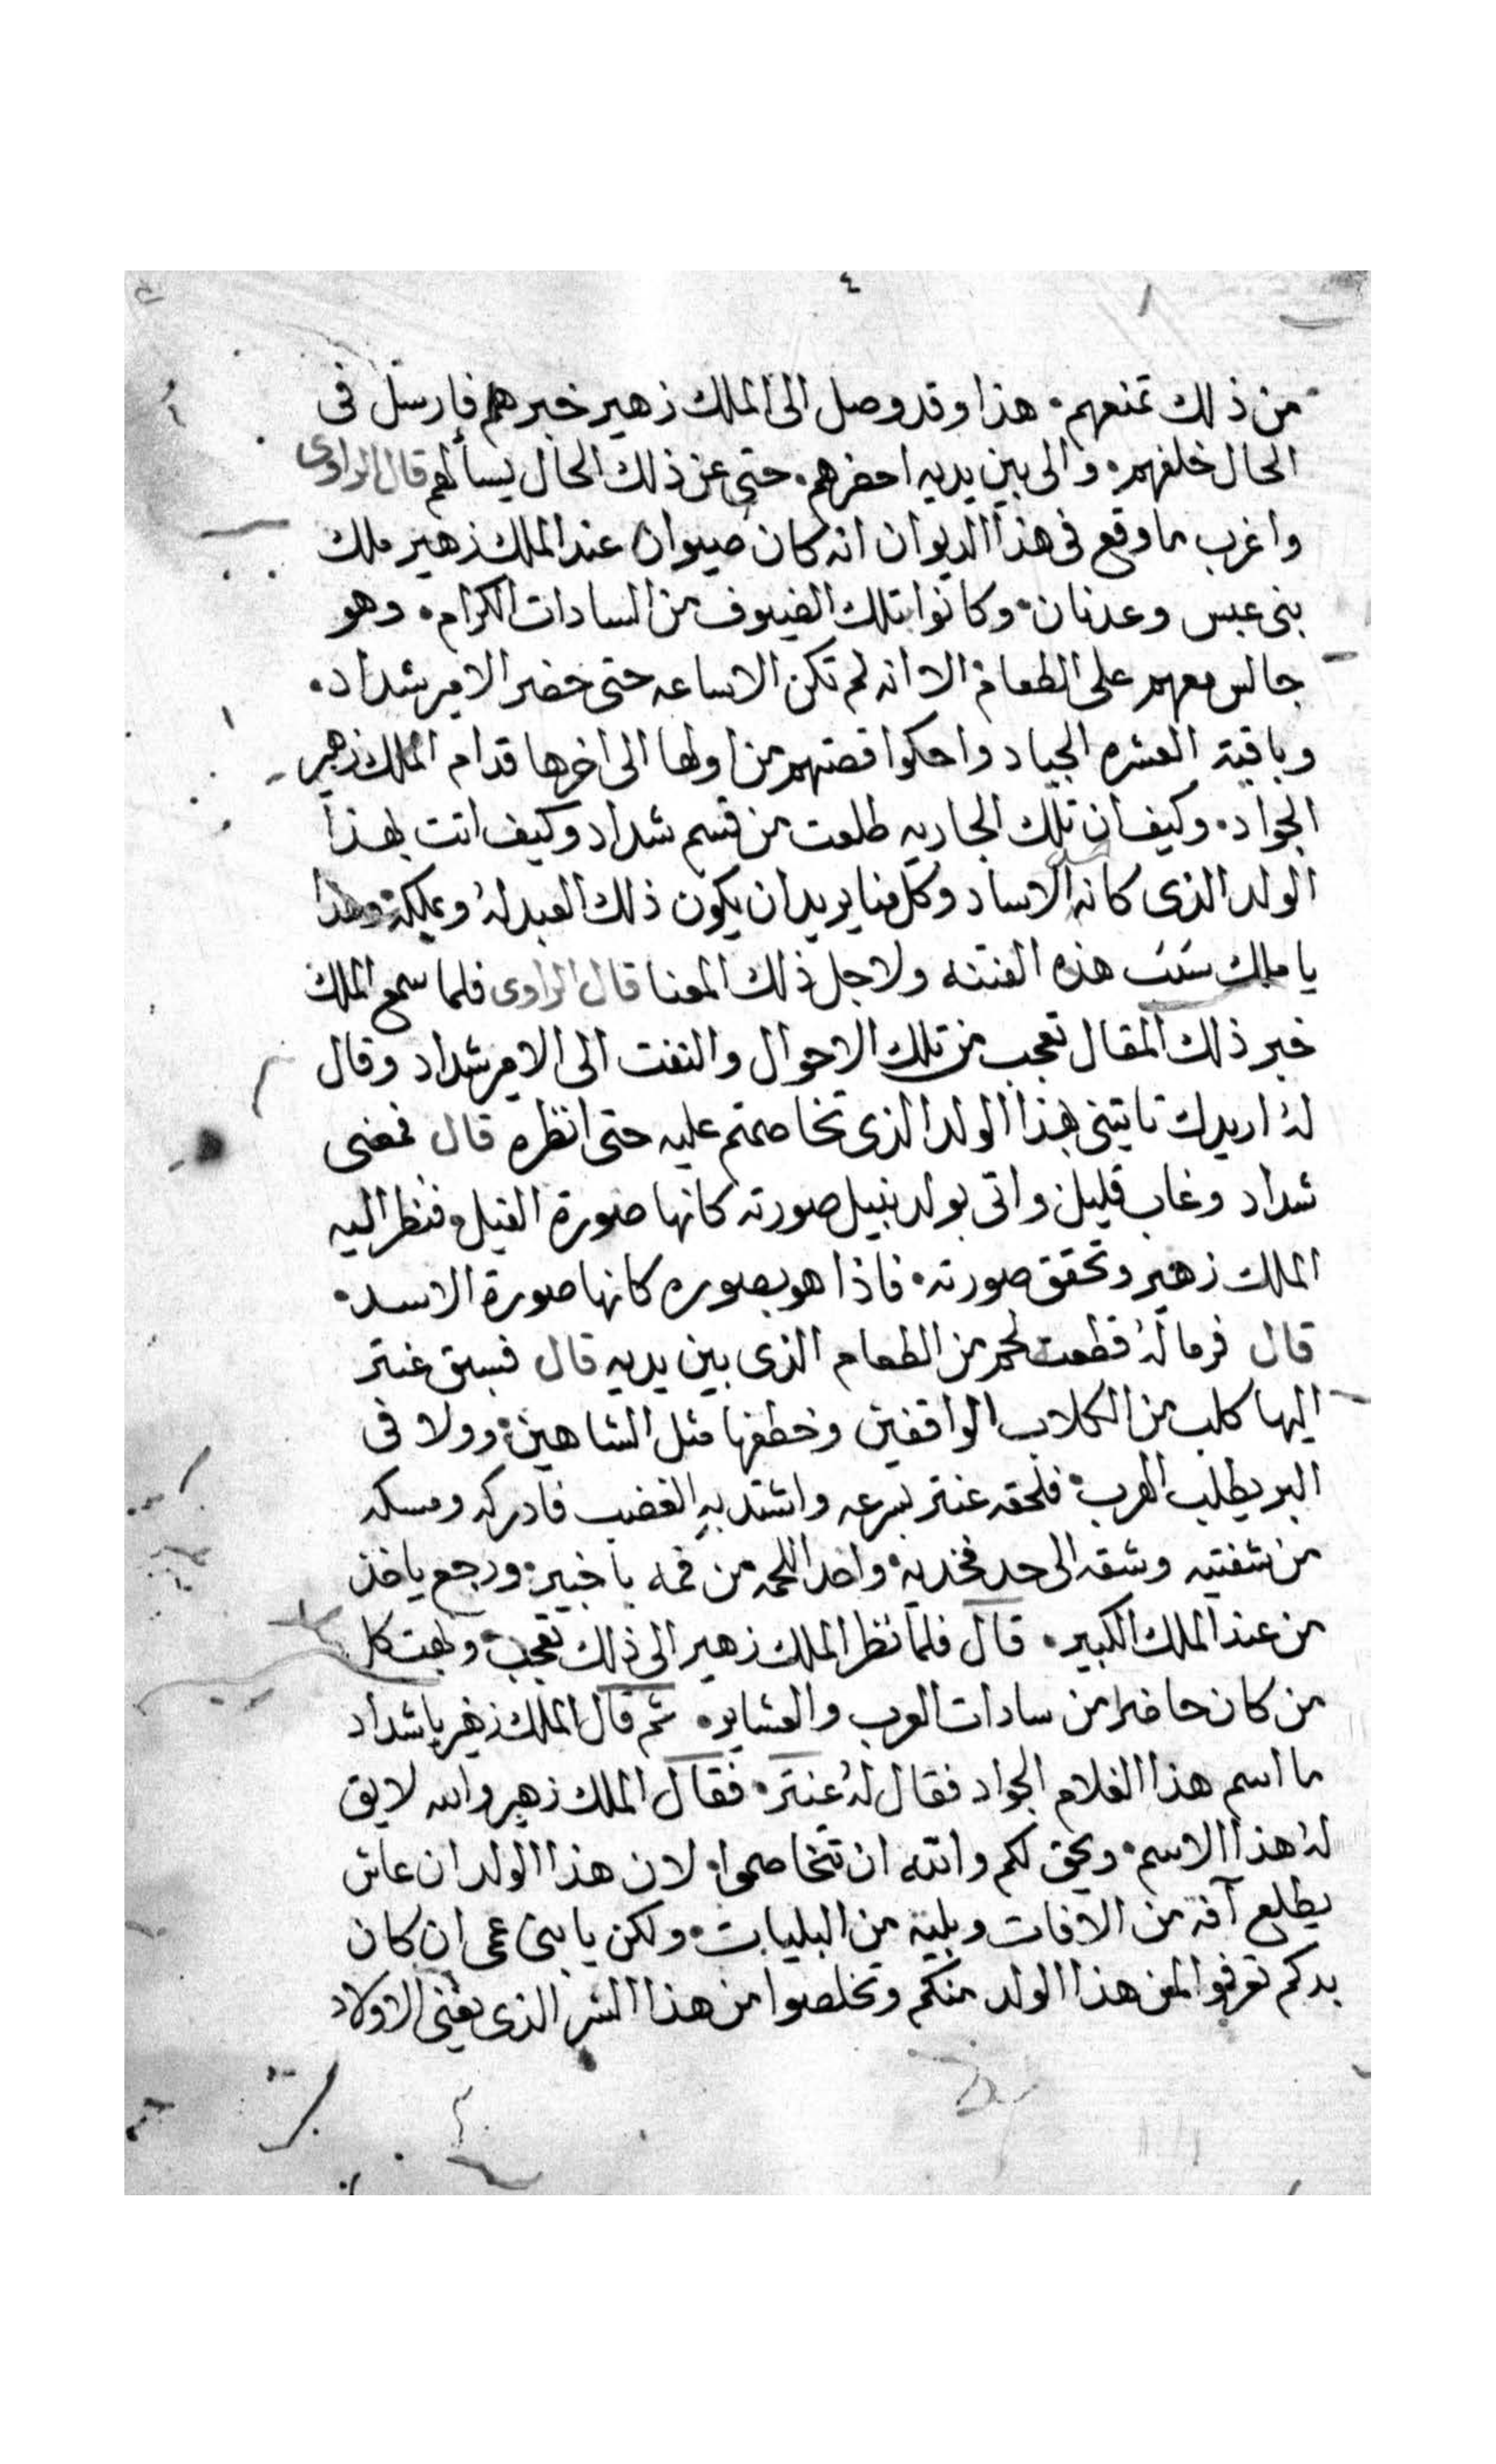 ٤
من ذلك تمنعهم. هذا وقد وصل الى الملك زهير خبرهم فارسل فى
الحال خلفهم. والى بين يديه احضرهم. حتى عن ذلك الحال يسألهم قال الراوى
واغرب ما وقع فى هذا الديوان انه كان ضيوان عند الملك زهير ملك
بنى عبس وعدنان. وكانوا بتلك الضيوف من السادات الكرام. وهو
جالس معهم على الطعام. الا انه لم تكن الا ساعه حتى حضر الامير شداد.
وباقية العشره الجياد واحكوا قصتهم من اولها الى اخرها قدام الملك زهير
الجواد. وكيف ان تلك الجاريه طلعت من قسم شداد وكيف اتت بهذا
الولد الذى كانه الاساد وكل منا يريد ان يكون ذلك العبد لهُ ويملكه. وهذا
يا ملك سبب هذه الفتنه ولاجل ذلك المعنا قال الراوى فلما سمع الملك
خبر ذلك المقال تعجب من تلك الاحوال والتفت الى الامير شداد وقال
لهُ اريدك تاتينى بهذا الولد الذى تخاصمتم عليه حتى انظره قال فمضى
شداد وغاب قليل. واتى بولد نبيل صورته كانها صورة الفيل. فنظر اليه
الملك زهير وتحقق صورته. فاذا هو بصوره كانها صورة الاسد.
قال فرما لهُ قطعت لحم من الطعام الذى بين يديه قال فسبق عنتر
اليها كلب من الكلاب الواقفين وخطفها مثل الشاهين. وولا فى
البر يطلب الهرب. فلحقه عنتر بسرعه واشتد بهِ الغضب فادركه ومسكه
من شفتيه وشقه الى حد فخديه. واخد اللحمه من فمه يا خبير. ورجع ياخذ
من عند الملك الكبير. قال فلما نظر الملك زهير الى ذلك تعجب. وبهت كل
من كان حاضرا من سادات العرب والعشاير. ثم قال الملك زهير يا شداد
ما اسم هذا الغلام الجواد فقال لهُ عنتر. فقال الملك زهير والله لايق
لهُ هذا الاسم. ويحق لكم والله ان تتخاصموا. لان هذا الولد ان عاش
يطلع آفه من الافات وبلية من البليات. ولكن يا بنى عمى ان كان
بدكم تعرفوا لمن هذا الولد منكم وتخلصوا من هذا الشر الذى يفنى الاولاد